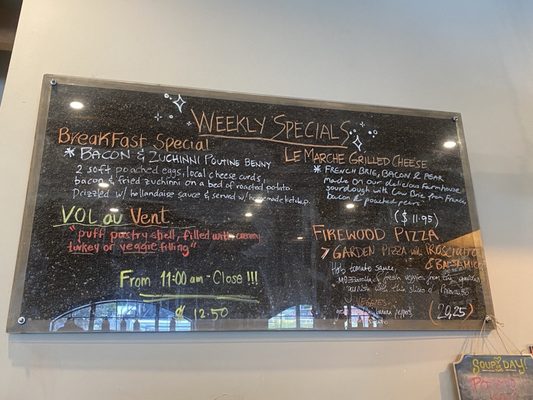 WEEKLY SPECIALS
BREAKFAST SPECIAL
* BACON & ZUCHINNI POUTINE BENNY
2 soft poached eggs, local cheese curds,
bacon & fried zuchinni on a bed of roasted potato.
Drizzled w/ hollandaise sauce & served w/ homemade ketchup.
VOL au Vent
"puff pastry shell, filled with creamy
turkey or veggie filling"
From 11:00 am - Close !!!
$ 12.50
LE MARCHE GRILLED CHEESE
* FRENCH BRIE, BACON & PEAR
made on our delicious Farmhouse
sourdough with Cow Brie from France,
bacon & poached pears.
($ 11.95)
FIREWOOD PIZZA
GARDEN PIZZA w/ PROSCIUTTO
& BALSAMIC
tomato sauce,
mozzarella & fresh veggies from the
garnish with thin slices of
VEGGIES:
peppers
(20,25)
SOUP of the DAY!